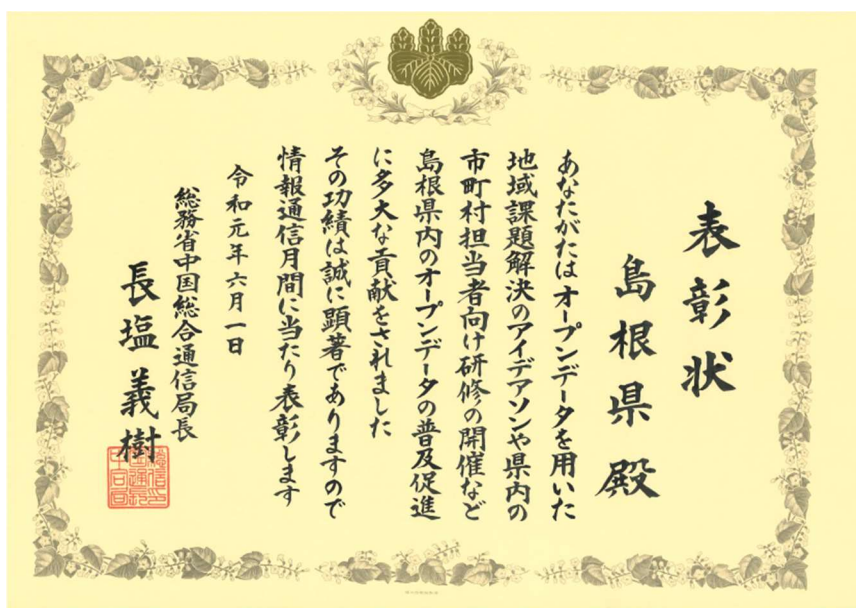 表彰状
島根県殿
あなたがたはオープンデータを用いた
地域課題解決のアイデアソンや県内の
市町村担当者向け研修の開催など
島根県内のオープンデータの普及促進
に多大な貢献をされました
その功績は誠に顕著でありますので
情報通信月間に当たり表彰します
令和元年六月一日
総務省中国総合通信局長
長塩義樹